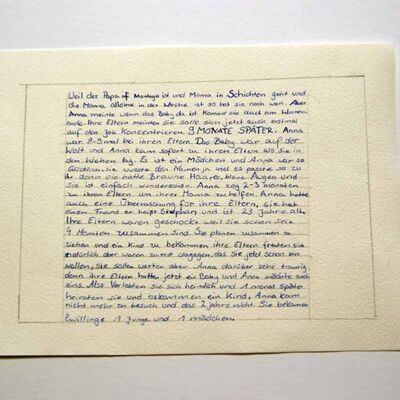 Weil der Papa auf Montage ist und Mama in Schichten geht und
die Mama alleine in der Woche ist so hat sie noch wen. Aber
Anna meinte wenn das Baby da ist kommt sie auch am Wochen-
ende. Ihre Eltern meinten sie solle sich jetzt auch erstmal
auf den Job konzentrieren. 9 MONATE SPÄTER. Anna
war 8-5 mal bei ihren Eltern. Das Baby war auf der
Welt und Anna kam sofort zu ihren Eltern als sie in
den Wehen lag. Es ist ein Mädchen und Anna war so
Glücklich sie wusste den Namen ja und es passte so zu
ihr denn sie hatte Braune Haare, blaue Augen und
Sie ist einfach wunderschön. Anna zog 2-3 monaten
zu ihren Eltern um ihrer Mama zu helfen. Anna hatte
auch eine Überraschung für ihre Eltern, sie hat
einen Freund er heißt Stephan und ist 23 Jahre alt.
Ihre Eltern waren geschockt weil sie schon seit
9 Monaten zusammen sind. Sie planen zusammen zu
ziehen und ein Kind zu bekommen ihre Eltern freuten sie
natürlich aber waren zuerst dagegen, das sie jetzt schon ein
wollen, sie sollen warten aber Anna darüber sehr traurig
denn ihre Eltern hatten jetzt ein Baby und Anna möchte auch
eins. Also Verlobten sie sich heimlich und 1 monat später
heiraten sie und bekommen ein Kind, Anna kam
nicht mehr zu besuch und das 2 Jahre nicht. Sie bekamen
Zwillinge 1 Junge und 1 mädchen.